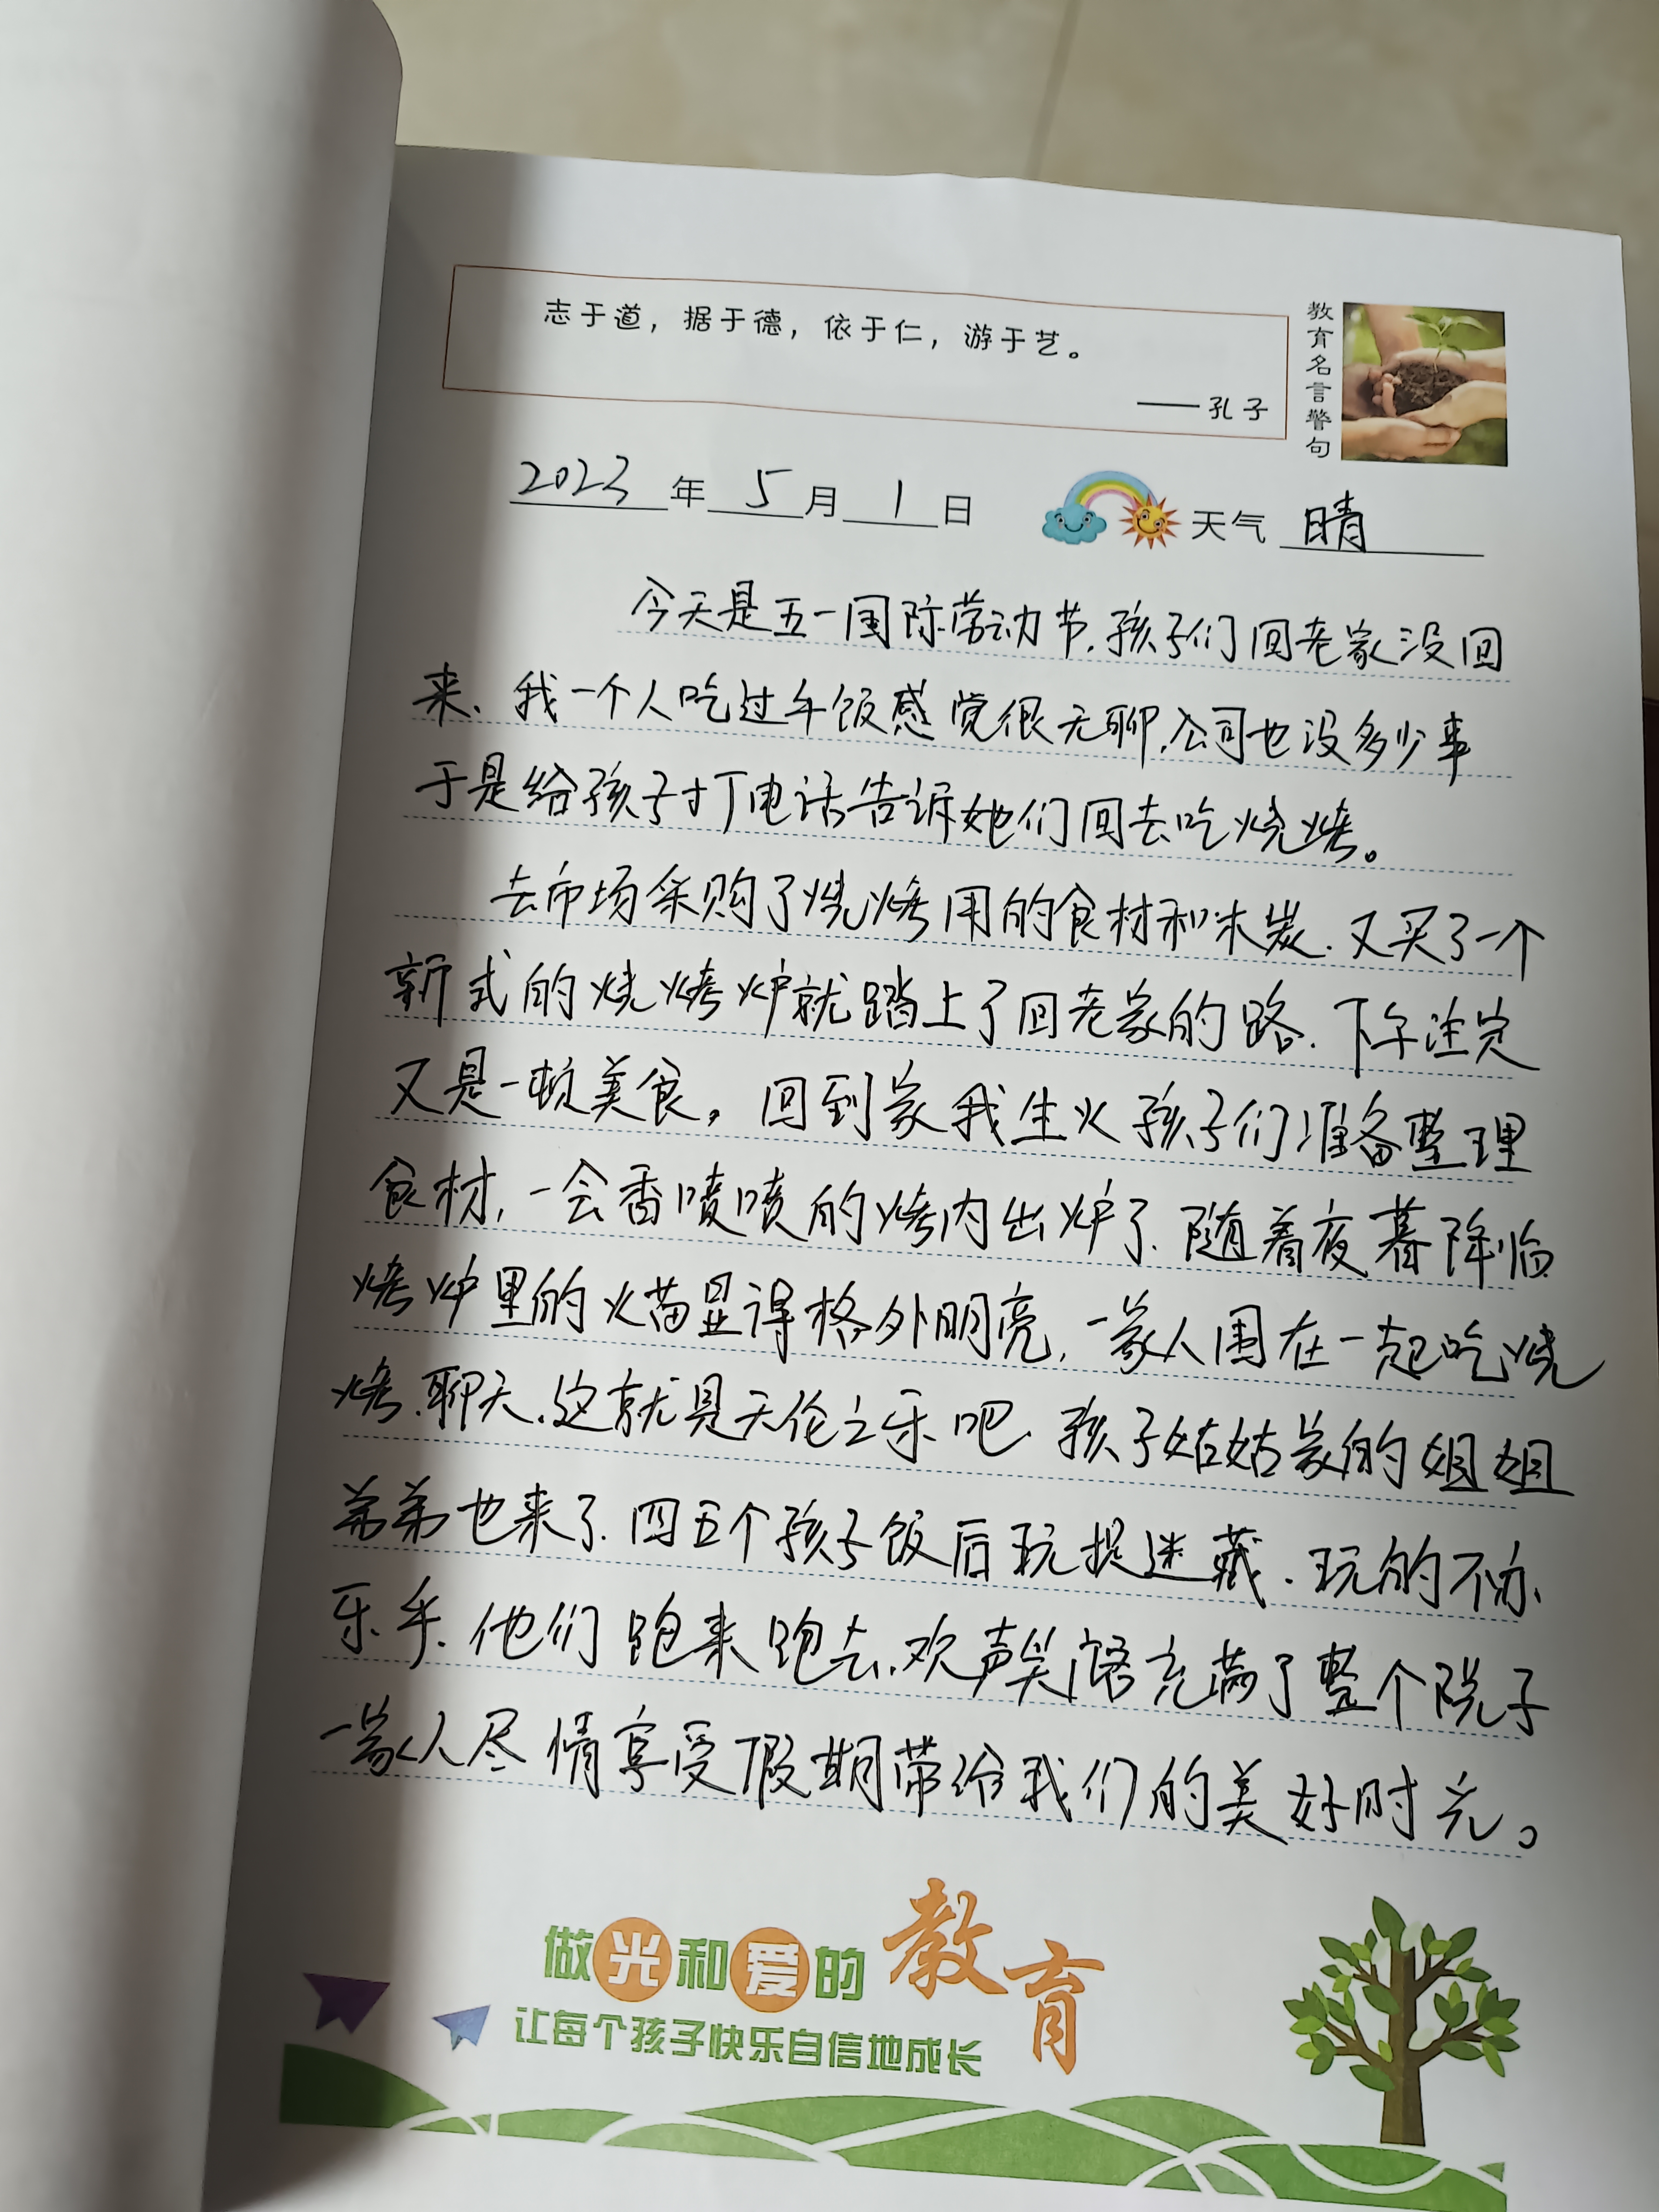 志于道，据于德，依于仁，游于艺。
——孔子
教育名言警句
2023年5月1日 天气 晴
今天是五一国际劳动节.孩子们回老家没回
来、我一个人吃过午饭感觉很无聊,公司也没多少事
于是给孩子打电话告诉她们回去吃烧烤。
去市场采购了烧烤用的食材和木炭.又买了一个
新式的烧烤炉就踏上了回老家的路.下午注定
又是一顿美食。回到家我生火孩子们准备整理
食材,一会香喷喷的烤肉出炉了.随着夜幕降临
烤炉里的火苗显得格外明亮,一家人围在一起吃烧
烤.聊天.这就是天伦之乐吧.孩子姑姑家的姐姐
弟弟也来了.四五个孩子饭后玩捉迷藏.玩的不亦
乐乎.他们跑来跑去.欢声笑语充满了整个院子
一家人尽情享受假期带给我们的美好时光。
做光和爱的教育
让每个孩子快乐自信地成长